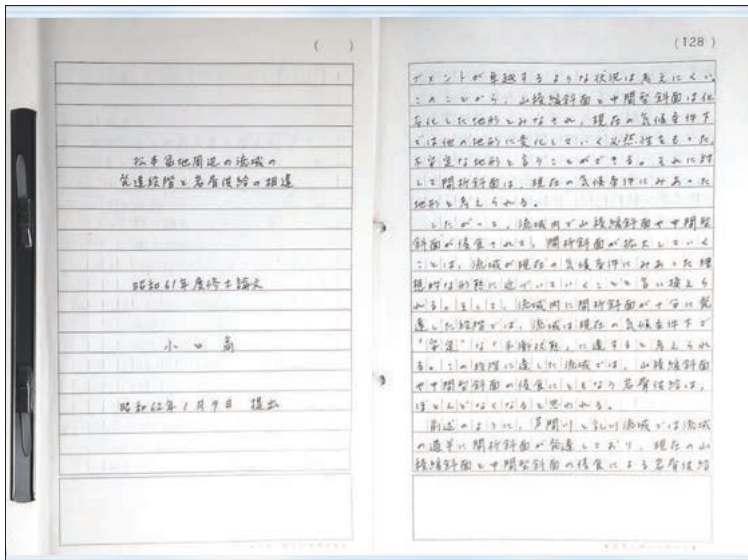 (　　)
松本盆地周辺の流域の
発達段階と岩屑供給の相違
昭和61年度修士論文
小口 高
昭和62年1月9日 提出
(128)
ヴメントが卓越するような状況は考えにくい。
このことから、山稜緩斜面と中間型斜面は化
石化した地形とみなされ、現在の気候条件下
では他の地形に変化していく必然性をもった、
不安定な地形と言うことができる。それに対
して開析斜面は、現在の気候条件にみあった
地形と考えられる。
したがって、流域内で山稜緩斜面や中間型
斜面が侵食されて、開析斜面が拡大していく
ことは、流域が現在の気候条件にみあった理
想的な形態に近づいていくことと言い換えら
れる。そして、流域内に開析斜面が十分に発
達した段階では、流域は現在の気候条件下で
"安定"な"平衡状態"に達すると考えられ
る。この段階に達した流域では、山稜緩斜面
や中間型斜面の侵食にともなう岩屑供給は、
ほとんどなくなると思われる。
前述のように、芦間川と乳川流域では流域
の過半に開析斜面が発達しており、現在の山
稜緩斜面と中間型斜面の侵食による岩屑供給